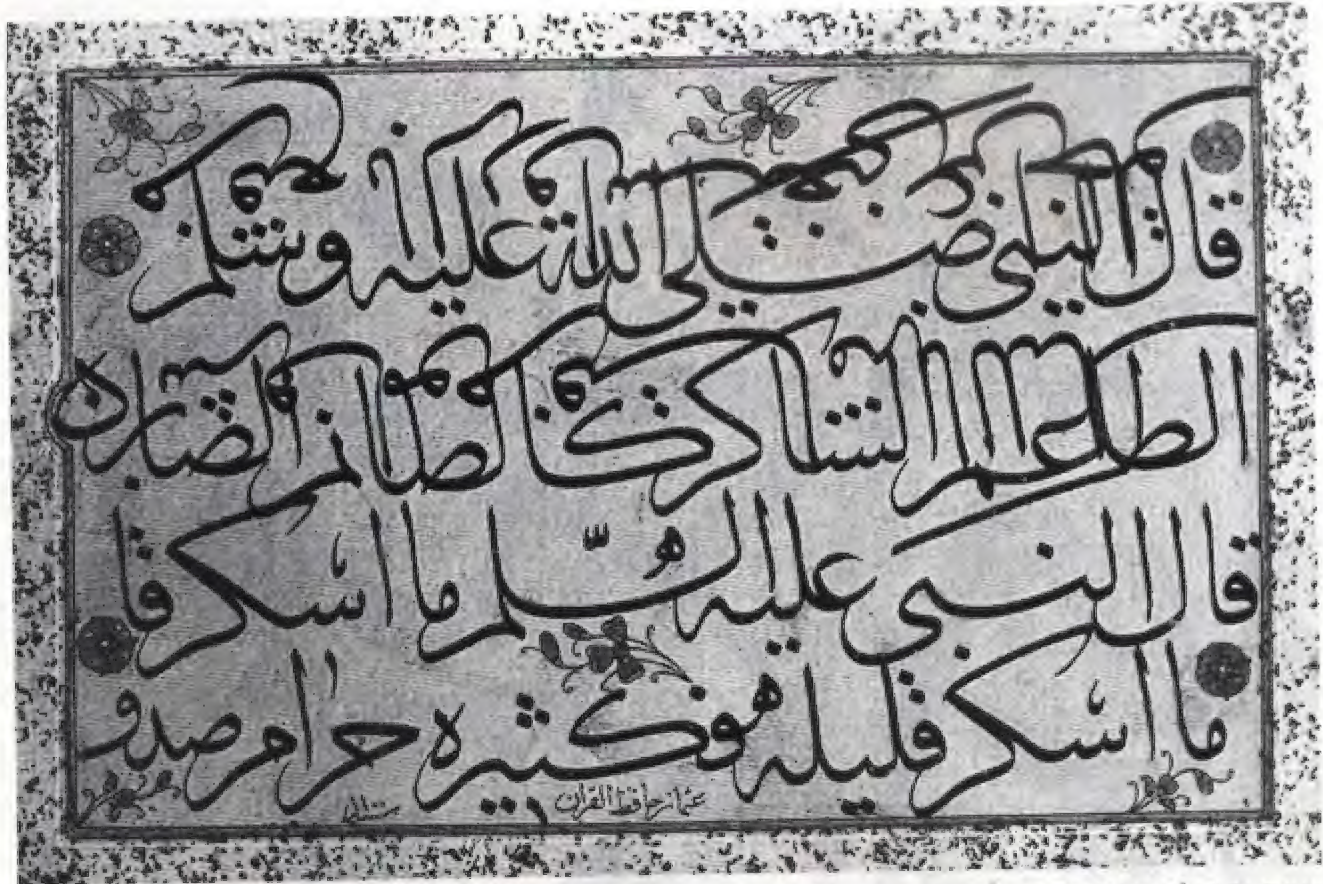 قال النبي صلى الله عليه وسلم
الطاعم الشاكر كالصائم الصابر
قال النبي عليه السلم ما اسكر قا
ما اسكر قليله فكثيره حرام
عثمان حافظ القران